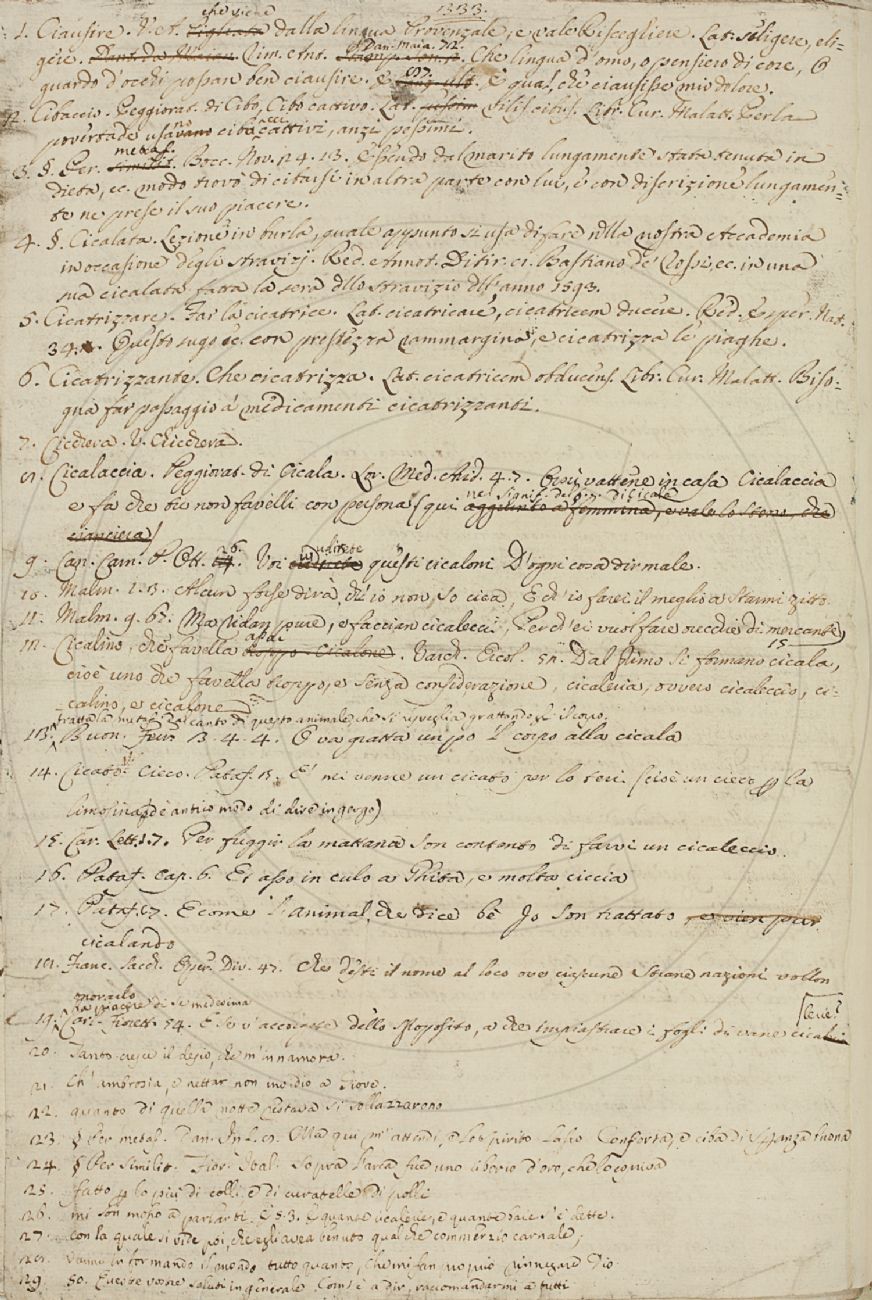 1333.
che viene
1. Ciausire. V. et. dalla lingua Provenzale, e vale Riscegliere. Lat. seligere, eli-
Dan. Maia. 72.
gere. Rim. Ant. Che lingua d'omo, o pensiero di core, O
guardo d'occhi possan ben ciausire. E 107. E qual, che ciausisse mio dolore.
2. Cibaccio. Peggiorat. di Cibo, Cibo cattivo. Lat. vilis cibus. Libr. Cur. Malatt. Per la
povertade usano cibacci cattivi, anzi pessimi.
metaf.
3. §. Per Bocc. Nov. 24. 13. Essendo dal marito lungamente stata tenuta in
dieta, ec. modo trovò di cibarsi in altra parte con lui, e con discrizione lungamen-
te ne prese il suo piacere.
4. §. Cicalata. Lezione in burla, quale appunto si usa di fare nlla nostra Accademia
in occasione degli stravizj. Red. Annot. Ditir. ci. Bastiano de' Rossi, ec. in una
sua cicalata fatta la sera dllo stravizio dll' anno 1593.
5. Cicatrizzare. Far la cicatrice. Lat. cicatricare, cicatricem ducere. Red. Esper. Nat.
34. Questo sugo ec. con prestezza rammargina, e cicatrizza le piaghe.
6. Cicatrizzante. Che cicatrizza. Lat. cicatricem obducens. Libr. Cur. Malatt. Biso-
gna far passaggio a' medicamenti cicatrizzanti.
7. Cicchera. V. Chicchera.
8. Cicalaccia. Peggiorat. di Cicala. Lor. Med. Arid. 4. 7. Orsù vattene in casa Cicalaccia
nel signif. del §. di Cicala
e fa che tu non favelli con persona (qui aggiunto a femmina, e vale lo stesso, che
ciarliera)
9. Can. Carn. P. Ott. 26. Voi udirete questi cicaloni D'ogni cosa dir male.
10. Malm. 1. 3. Alcun forse dirà, ch'io non so cica, E ch'io farei il meglio a starmi zitto.
11. Malm. 9. 62. Ma ridan pure, e faccian cicalecci, Perch'ei vuol fare orecchie di mercante
assai
12. Cicalino, che favella troppo Cicalone. Varch. Ercol. 52. Dal primo si formano cicala,
cioè uno che favella troppo, e senza considerazione, cicaleria, ovvero cicaleccio, ci-
calino, e cicalone
tratta la metaf. dal canto di questo animale, che si risveglia grattandogli il corpo.
13. Buon. Fier. 3. 4. 4. E va gratta un po' 'l corpo alla cicala
14. Cicato. Cieco. Pataff. 1. E' mi venne un cicato per lo teri (cioè un cieco p la
limosina, ed è antico modo di dire in gergo)
15. Car. Lett. 1. 7. Per fuggir la mattana son contento di farvi un cicaleccio.
16. Pataf. Cap. 6. Et asso in culo a Ghita, e molta ciccia
17. Pataf. 7. E come l'animal che dice bè Io son trattato
cicalando
18. Franc. Sacch. Oper. Div. 47. Che desti il nome al loco ove ciascune strane nazioni vollon
onorarlo
19. Car. Lett. 54. E se v'accorgete dello sproposito, a che impiastrare i fogli di vane cicalerie
20. Tanto cresce il desio, che m'innamora.
21. Ch'ambrosia, e nettar non invidio a Giove.
22. quanto di quella notte restava si sollazzarono
23. § Per metaf. Dan. Inf. 8. Ma qui m'attendi, e lo spirito lasso Conforta, e ciba di speranza buona
24. § Per similit. Fior. Ital. Sopra l'arca fue uno ciborio d'oro, che lo copriva
25. fatto p lo più di colli, e di curatelle di polli
26. mi son messo a parlarti. E 5. 3. E quante cicalerie, e quante baie s'è dette.
27. con la quale si vide poi, che egli avea tenuto qualche commerzio carnale;
28. vanno informando il mondo tutto quanto, Che mi fan proprio rinnegare Dio
29. 50. Queste vostre saluti in generale Com'è a dir, raccomandarmi a tutti